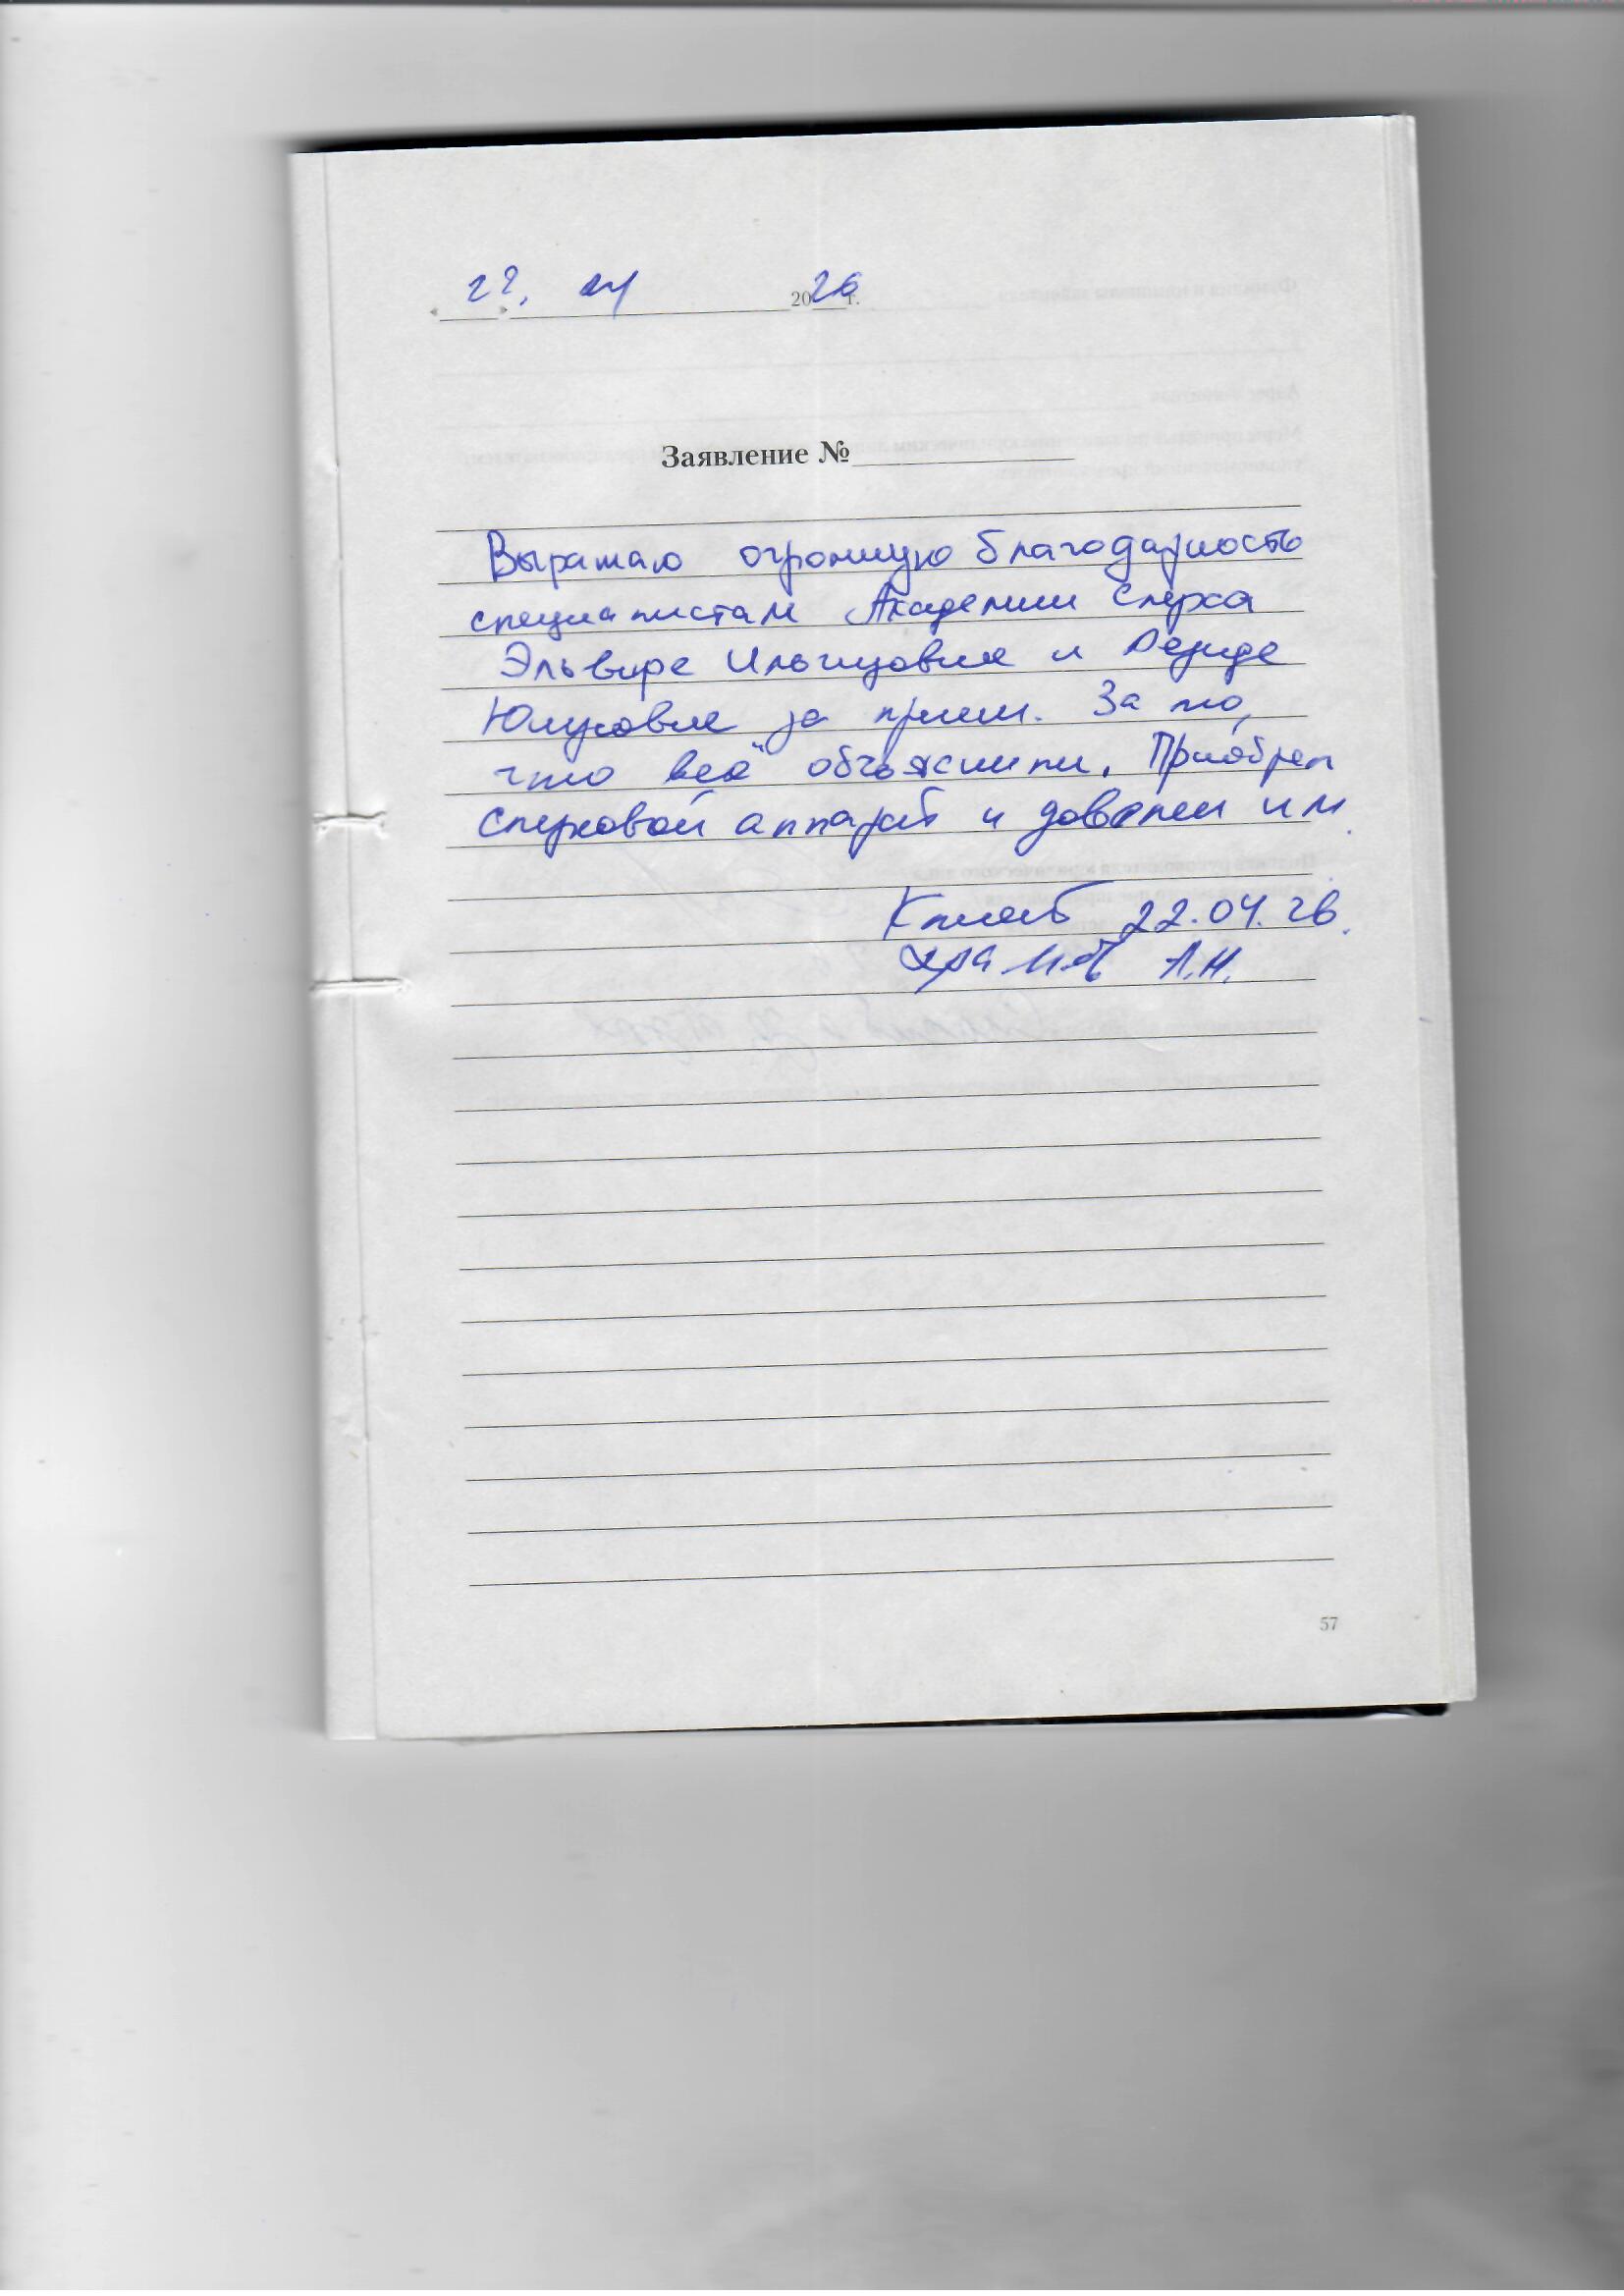 «22» 04 2026 г.
Заявление №
Выражаю огромную благодарность
специалистам Академии Слуха
Эльвире Ильгизовне и Резиде
Юнусовне за прием. За то,
что всё объяснили. Приобрел
слуховой аппарат и доволен им.
Клиент 22.04.26.
А.Н.
57